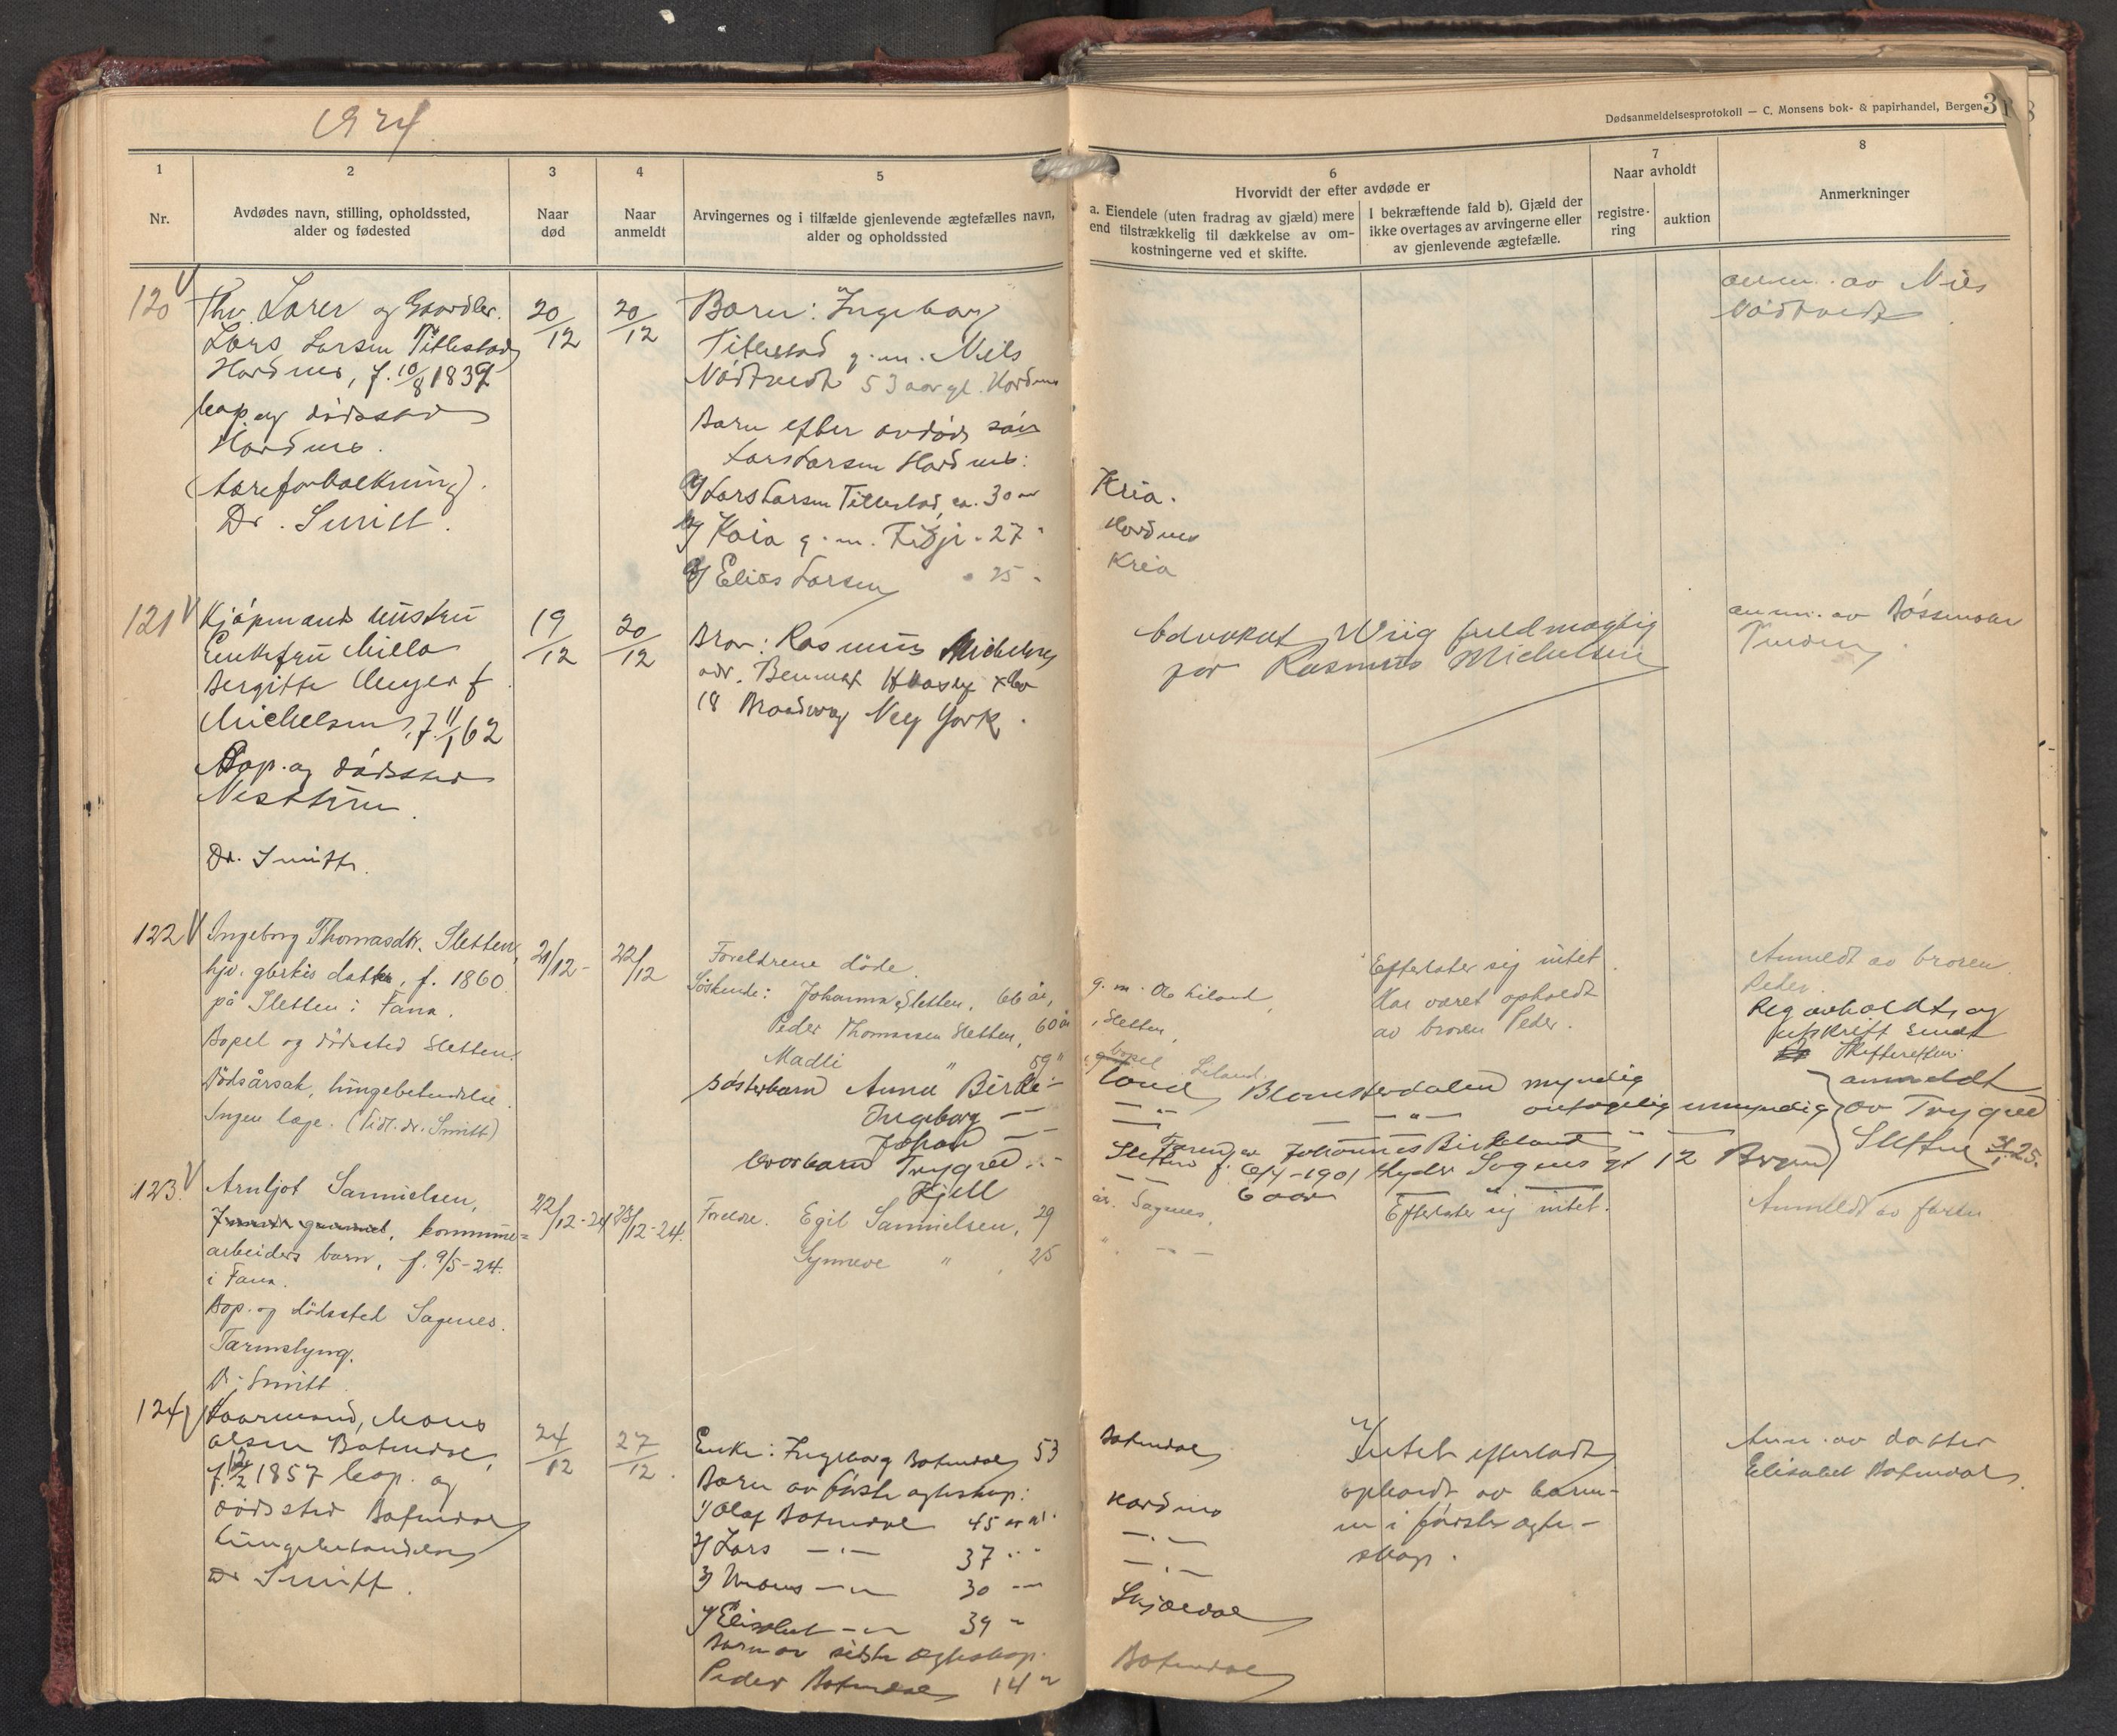 1924.
Dødsanmeldelsesprotokoll — C. Monsens bok- & papirhandel, Bergen
1
Nr.
2
Avdødes navn, stilling, opholdssted,
alder og fødested
3
Naar
død
4
Naar
anmeldt
5
Arvingernes og i tilfælde gjenlevende ægtefælles navn,
alder og opholdssted
6
Hvorvidt der efter avdøde er
a. Eiendele (uten fradrag av gjæld) mere
end tilstrækkelig til dækkelse av om-
kostningerne ved et skifte.
I bekræftende fald b). Gjæld der
ikke overtages av arvingerne eller
av gjenlevende ægtefælle.
7
Naar avholdt
registre-
ring
auktion
8
Anmerkninger
120
Lærer og
Lars Larsen Titlestad
Hordnes, f. 10/8 1839
bop. og dødssted
Hordnes.
(Aareforkalkning).
Dr. Smitt.
20/12
20/12
Barn: Ingeborg
Titlestad g. m. Niels
Nødtvedt 53 aar gl. Hordnes
Barn efter avdød søn
Lars Larsen Hordnes:
Lars Larsen Titlestad, ca. 30 aar
Kria.
Kaia g. m. 27 "
Hordnes
Elias Larsen " 25 "
Kria
anm. av Niels
Nødtvedt
121
Kjøpmands hustru
Enkefru Milla
Bergitte Meyer f.
Michelsen, f. 11/1 62
Bop. og dødssted
Nesttun.
Dr. Smitt.
19/12
20/12
Bror: Rasmus Michelsen
adr. & Co
18 Broadway New York.
Advokat Wiig fuldmægtig
for Rasmus Michelsen
anm. av
122
Ingeborg Thomasdtr. Sletten,
datter, f. 1860
på Sletten i Fana.
Bopel og dødssted Sletten.
Dødsårsak, lungebetendelse.
Ingen læge. (Tidl. dr. Smitt)
21/12-
22/12
Foreldrene døde.
Søskende: Johanna Sletten, 66 år,
g. m. Ole Liland,
Peder Thomassen Sletten, 60 år
, Sletten,
Madli " 59 "
bopel Liland.
Søsterbarn Anna Birke-
land Blomsterdalen myndig
Ingeborg — —
— " — — " — umyndig
Johan — —
Johannes Birkeland
Brorbarn Trygve — " —
Sletten f. 6/4-1901
Kjell
6 aar
Efterlater sig intet.
Har været opholdt
av broren Peder.
Anmeldt av broren
Peder.
Reg. avholdt, og
utskrift sendt
Skifteretten
anmeldt
av Trygve
Sletten 3/1 25.
123.
Arnljot Samuelsen,
kommune-
arbeiders barn, f. 9/5-24.
i Fana.
Bop. og dødssted Sagenes.
Tarmslyng.
Dr. Smitt.
22/12-24
23/12-24.
Foreldre. Egil Samuelsen, 29
år. Sagenes.
Synneve " , 25
" — " —
Efterlater sig intet.
Anmeldt av faren
124
Kaarmand, Mons
Olsen Botnedal,
f. 12/2 1857 bop. og
dødssted Botnedal
Lungebetendelse
Dr Smitt.
24/12
27/12.
Enke: Ingeborg Botnedal 53
Botnedal
Barn av første egteskap:
1) Olaf Botnedal 45 aar
Hordnes
2) Lars — " — 37 "
— " —
3) Mons — " — 30 "
— " —
4) Elisabet — " — 39 "
Skjoldal
Barn av siste egteskap.
Peder Botnedal 14 "
Botnedal
Intet efterladt
opholdt av barne-
ne i første egte-
skap.
Anm. av datter
Elisabet Botnedal.